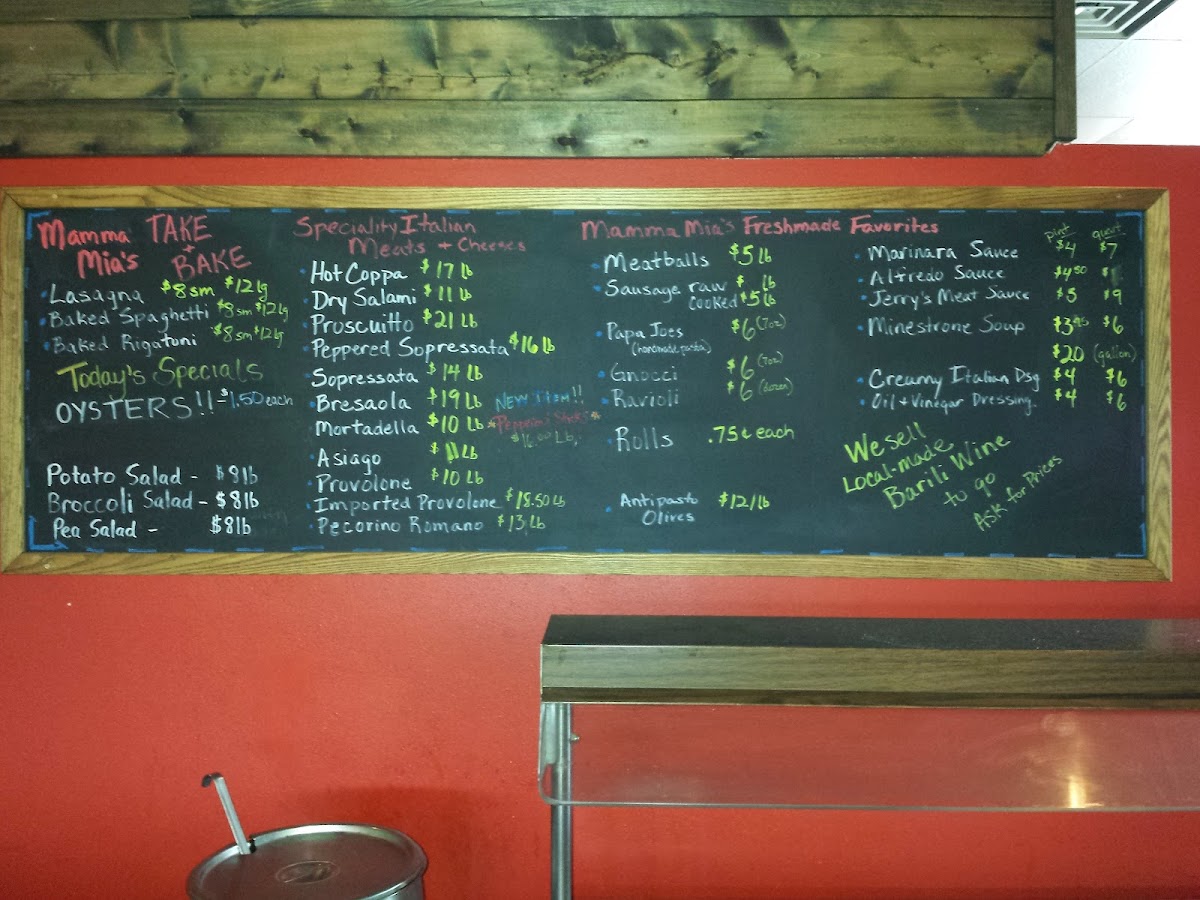 Mamma Mia's TAKE + BAKE
Lasagna $8 sm $12 lg
Baked Spaghetti $8 sm $12 lg
Baked Rigatoni $8 sm $12 lg
Today's Specials
OYSTERS!! $1.50 each
Potato Salad - $8 lb
Broccoli Salad - $8 lb
Pea Salad - $8 lb
Speciality Italian
Meats + Cheeses
Hot Coppa $17 lb
Dry Salami $11 lb
Proscuitto $21 lb
Peppered Sopressata $16 lb
Sopressata $14 lb
Bresaola $19 lb
Mortadella $10 lb
Asiago $11 lb
Provolone $10 lb
Imported Provolone $18.50 lb
Pecorino Romano $13 lb
NEW ITEM!!
Pepperoni Sticks
$16.00 Lb.
Mamma Mia's Freshmade Favorites
Meatballs $5 lb
Sausage raw $ lb
cooked $5 lb
Papa Joes $6 (7oz)
(homemade pasta)
Gnocci $6 (7oz)
Ravioli $6 (dozen)
Rolls .75¢ each
Antipasto $12/lb
Olives
pint quart
Marinara Sauce $4 $7
Alfredo Sauce $4.50 $
Jerry's Meat Sauce $5 $9
Minestrone Soup $3.95 $6
$20 (gallon)
Creamy Italian Dsg $4 $6
Oil + Vinegar Dressing. $4 $6
We sell
Local-made
Barili Wine
to go
Ask for Prices